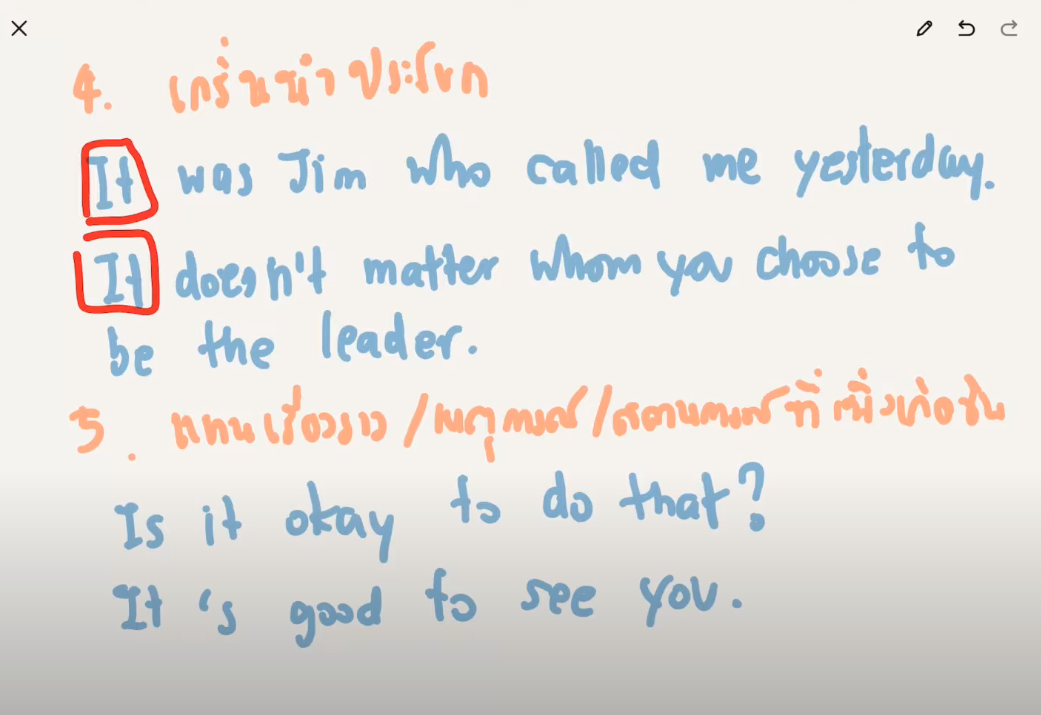 4. เกริ่นนำประโยค
It was Jim who called me yesterday.
It doesn't matter whom you choose to
be the leader.
5. แทนเรื่องราว/เหตุการณ์/สถานการณ์ที่เพิ่งเกิดขึ้น
Is it okay to do that?
It's good to see you.